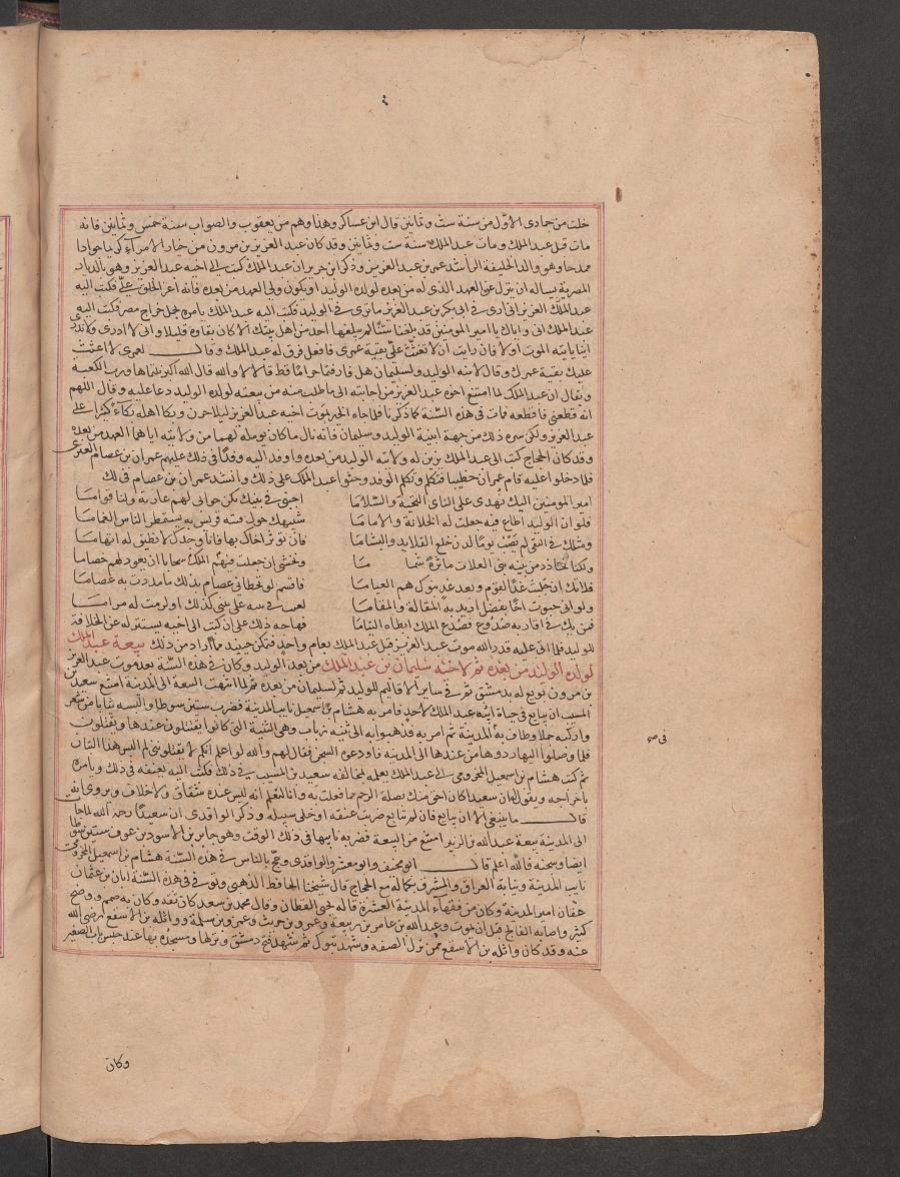 خلت من جمادى الاول من سنة ست وثمانين قال ابن عساكر وهذا وهم من يعقوب والصواب سنة خمس وثمانين فانه
مات قبل عبد الملك ومات عبد الملك سنة ست وثمانين وقد كان عبد العزيز بن مرون من خيار الامراء كريما جوادا
ممدحا وهو والد الخليفة الراشد عمر بن عبد العزيز وذكر ابن جرير ان عبد الملك كتب الى اخيه عبد العزيز وهو بالديار
المصرية يساله ان ينزل عن العهد الذي له من بعده لولده الوليد او يكون ولي العهد من بعده فانه اعز الخلق علي فكتب اليه
عبد العزيز اني ارى في ابي بكر بن عبد العزيز ما ترى في الوليد فكتب اليه عبد الملك يامره بحمل خراج مصر فكتب اليه
عبد الملك اني واياك يا امير المومنين قد بلغنا سنا لم يبلغها احد من اهل بيتك الا كان بقاوه قليلا واني لا ادرى ولا تدرى
اينا ياتيه الموت اولا فان رايت ان لا تغثث علي بقية عمرى فافعل فرق له عبد الملك وقال لعمرى لا اغثث
عليك بقية عمرك وقال لابنه الوليد وسليمان هل قارفتما حراما قط قالا لا والله قال الله اكبر نلتماها ورب الكعبة
ويقال ان عبد الملك لما امتنع اخوه عبد العزيز من اجابته الى ما طلب منه من بيعته لولده الوليد دعا عليه وقال اللهم
انه قطعني فاقطعه فمات في هذه السنة كما ذكرنا فلما جاه الخبر بموت اخيه عبد العزيز ليلا حزن وبكا اهله بكاء كثيرا على
عبد العزيز ولكن سره ذلك من جهة ابنيه الوليد وسليمان فانه نال ما كان يومله لهما من ولايته اياهما العهد من بعده
وقد كان الحجاج كتب الى عبد الملك يزين له ولاية الوليد من بعده واوفد اليه وفدا في ذلك عليهم عمران بن عصام العنزى
فلما دخلوا عليه قام عمران خطيبا فتكلم وتكلم الوفد وحثوا عبد الملك على ذلك وانشد عمران بن عصام في ذلك
امير المومنين اليك نهدى على الناى التحية والسلاما اجبنى في بنيك يكن جوابى لهم عادية ولنا قواما
فلو ان الوليد اطاع فيه جعلت له الخلافة والاماما شبيهك حول قبته قريش به يستمطر الناس الغماما
ومثلك في التقى لم يصب يوما لدن خلع القلايد والتماما فان توثر اخاك بها فانا وجدك لا نطيق لها اتهاما
ولكنا نحاذر من بنيه بنى العلات ماثرة سماما ونخشى ان جعلت الملك فيهم سحابا ان يعود لهم جهاما
فلا يك ما حلبت غدا لقوم وبعد غد بنوك هم العياما فاقسم لو تخطانى عصام بذلك ما عذرت به عصاما
ولو انى حبوت اخا بفضل اريد به المقالة والمقاما لعقب في بنيه على بنى كذلك او لرمت له مراما
فمن يك في اقاربه صدوع فصدع الملك ابطاه التياما فهاجه ذلك على ان كتب الى اخيه يستنزله عن الخلافة
للوليد فابى عليه قدر الله موت عبد العزيز قبل عبد الملك بعام واحد فتمكن حينيذ مما اراد من ذلك بيعة عبد الملك
لولده الوليد من بعده ثم لاخيه سليمان بن عبد الملك من بعد الوليد وكان في هذه السنة بعد موت عبد العزيز
بن مرون بويع له بدمشق ثم في ساير الاقاليم للوليد ثم لسليمان من بعده ثم لما انتهت البيعة الى المدينة امتنع سعيد بن
المسيب ان يبايع في حياة ابيه عبد الملك لاحد فامر به هشام بن اسمعيل نايب المدينة فضرب ستين سوطا والبسه ثيابا من شعر
واركبه جملا وطاف به المدينة ثم امر به فذهبوا به الى ثنية ذباب وهي الثنية التى كانوا يقتلون عندها ويقتلون
فلما وصلوا اليها ردوها من عندها الى المدينة فاودعوه السجن فقال لهم والله لو اعلم انكم لا تقتلونى لم البس هذا التبان
ثم كتب هشام بن اسمعيل المخزومى الى عبد الملك يعلمه بمخالفة سعيد بن المسيب في ذلك فكتب اليه يعنفه في ذلك ويامره
باخراجه ويقول ان سعيدا كان احق منك بصلة الرحم مما فعلت به وانا لنعلم انه ليس عنده شقاق ولا خلاف ويروى انه
قال ما ينبغى الا ان يبايع فان لم يبايع ضربت عنقه او خلى سبيله وذكر الواقدى ان سعيدا رحمه الله لما جات
الى المدينة بيعة عبد الله بن الزبير امتنع من البيعة فضربه نايبها في ذلك الوقت وهو جابر بن الاسود بن عوف ستين سوطا
ايضا وسجنه فالله اعلم قال ابو مخنف وابو معشر والواقدى وحج بالناس في هذه السنة هشام بن اسمعيل المخزومى
نايب المدينة ونيابة العراق والمشرق بكماله مع الحجاج قال شيخنا الحافظ الذهبى وتوفى في هذه السنة ابان بن عثمان
عفان امير المدينة وكان من فقهاء المدينة العشرة قاله يحيى القطان وقال محمد بن سعد كان ثقة وكان به صمم ووضح
كثير واصابه الفالج قبل ان يموت وعبد الله بن عامر بن ربيعة وعمرو بن حريث وعمرو بن سلمة وواثلة بن الاسقع رضى الله
عنه وقد كان واثلة بن الاسقع ممن نزل الصفة وشهد تبوك ثم شهد فتح دمشق ونزلها ومسجده بها عند حبس باب الصغير
وكان